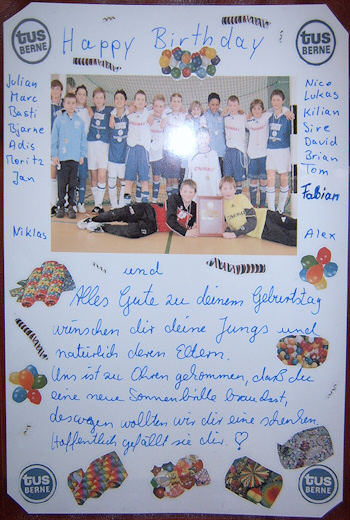 tus BERNE
Happy Birthday
tus BERNE
Julian
Marc
Basti
Bjarne
Adis
Moritz
Jan
Niklas
Nico
Lukas
Kilian
Sire
David
Brian
Tom
Fabian
Alex
und
Alles Gute zu deinem Geburtstag
wünschen dir deine Jungs und
natürlich deren Eltern.
Uns ist zu Ohren gekommen, daß du
eine neue Sonnenbrille brauchst,
deswegen wollten wir dir eine schenken.
Hoffentlich gefällt sie dir. ♡
tus BERNE
tus BERNE